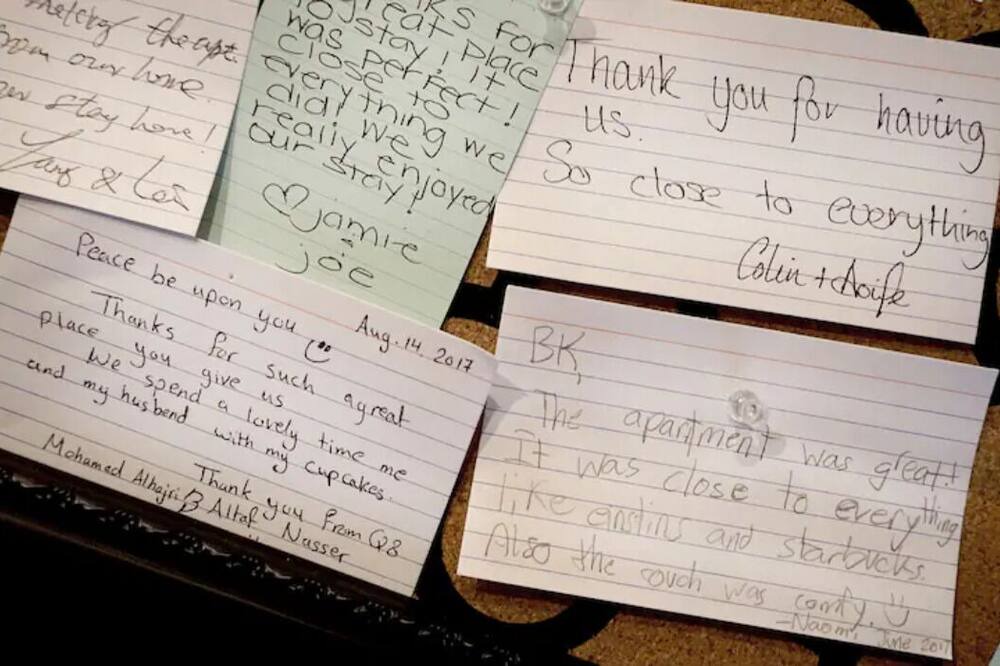 from our home.
stay here!
& Lois
for
great place
to stay! it
was perfect!
close to
everything we
did! we
really enjoyed
our stay!
♡ jamie
&
joe
Thank you for having
us.
So close to everything
Colin + Aoife
Peace be upon you
Aug. 14. 2017
Thanks for such agreat
place you give us
We spend a lovely time me
and my husband with my cupcakes.
Thank you From Q8
Mohamed Alhajri & Altaf Nasser
BK,
The apartment was great!
It was close to everything
like and starbucks.
Also the couch was comfy.
-Naomi, June 2017